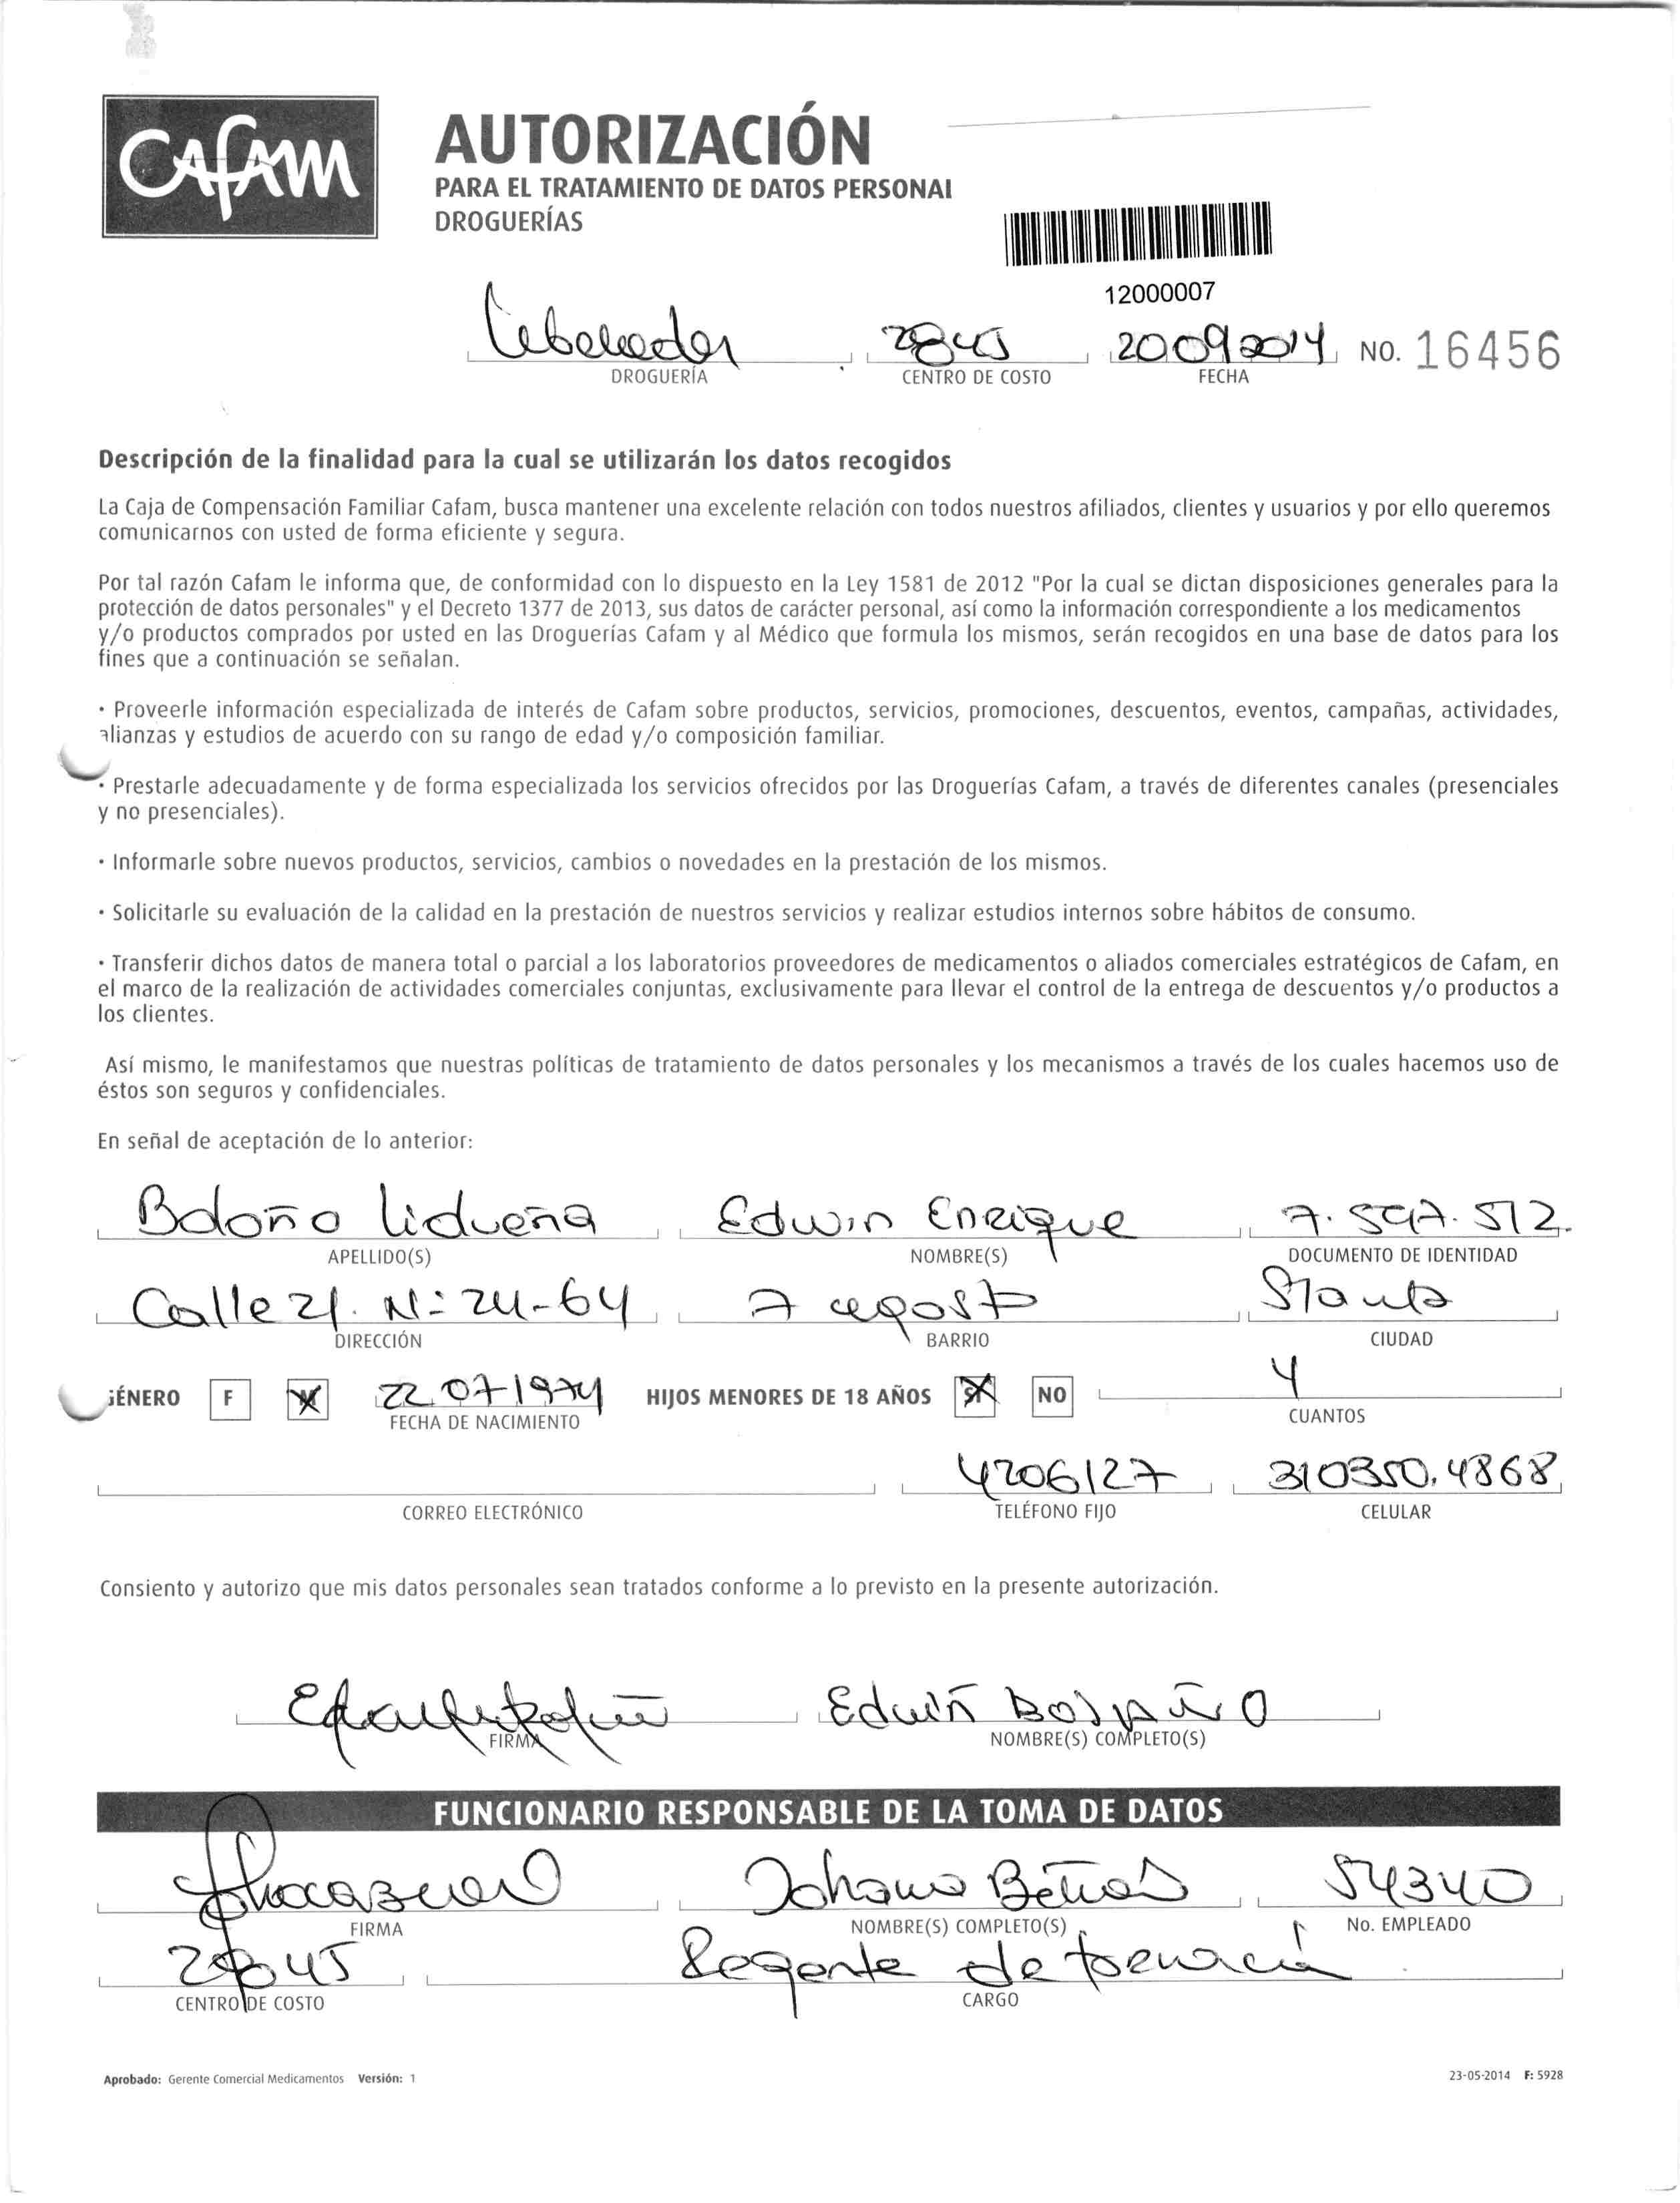 Cafam
AUTORIZACIÓN
PARA EL TRATAMIENTO DE DATOS PERSONAL
DROGUERÍAS
12000007
20092014 NO. 16456
DROGUERÍA CENTRO DE COSTO FECHA
Descripción de la finalidad para la cual se utilizarán los datos recogidos
La Caja de Compensación Familiar Cafam, busca mantener una excelente relación con todos nuestros afiliados, clientes y usuarios y por ello queremos
comunicarnos con usted de forma eficiente y segura.
Por tal razón Cafam le informa que, de conformidad con lo dispuesto en la Ley 1581 de 2012 "Por la cual se dictan disposiciones generales para la
protección de datos personales" y el Decreto 1377 de 2013, sus datos de carácter personal, así como la información correspondiente a los medicamentos
y/o productos comprados por usted en las Droguerías Cafam y al Médico que formula los mismos, serán recogidos en una base de datos para los
fines que a continuación se señalan.
· Proveerle información especializada de interés de Cafam sobre productos, servicios, promociones, descuentos, eventos, campañas, actividades,
alianzas y estudios de acuerdo con su rango de edad y/o composición familiar.
· Prestarle adecuadamente y de forma especializada los servicios ofrecidos por las Droguerías Cafam, a través de diferentes canales (presenciales
y no presenciales).
· Informarle sobre nuevos productos, servicios, cambios o novedades en la prestación de los mismos.
· Solicitarle su evaluación de la calidad en la prestación de nuestros servicios y realizar estudios internos sobre hábitos de consumo.
· Transferir dichos datos de manera total o parcial a los laboratorios proveedores de medicamentos o aliados comerciales estratégicos de Cafam, en
el marco de la realización de actividades comerciales conjuntas, exclusivamente para llevar el control de la entrega de descuentos y/o productos a
los clientes.
Así mismo, le manifestamos que nuestras políticas de tratamiento de datos personales y los mecanismos a través de los cuales hacemos uso de
éstos son seguros y confidenciales.
En señal de aceptación de lo anterior:
Boloño Lidueña Edwin Enrique 7.597.512.
APELLIDO(S) NOMBRE(S) DOCUMENTO DE IDENTIDAD
Calle 21. N: 24-64 7 agosto Sta Mta
DIRECCIÓN BARRIO CIUDAD
GÉNERO F M 22 07 1974 HIJOS MENORES DE 18 AÑOS SI NO 4
FECHA DE NACIMIENTO CUANTOS
4206127 310350.4868
CORREO ELECTRÓNICO TELÉFONO FIJO CELULAR
Consiento y autorizo que mis datos personales sean tratados conforme a lo previsto en la presente autorización.
Edwin Bolaño
FIRMA NOMBRE(S) COMPLETO(S)
FUNCIONARIO RESPONSABLE DE LA TOMA DE DATOS
Johana 54340
FIRMA NOMBRE(S) COMPLETO(S) No. EMPLEADO
Regente de farmacia
CENTRO DE COSTO CARGO
Aprobado: Gerente Comercial Medicamentos Versión: 1 23-05-2014 F: 5928